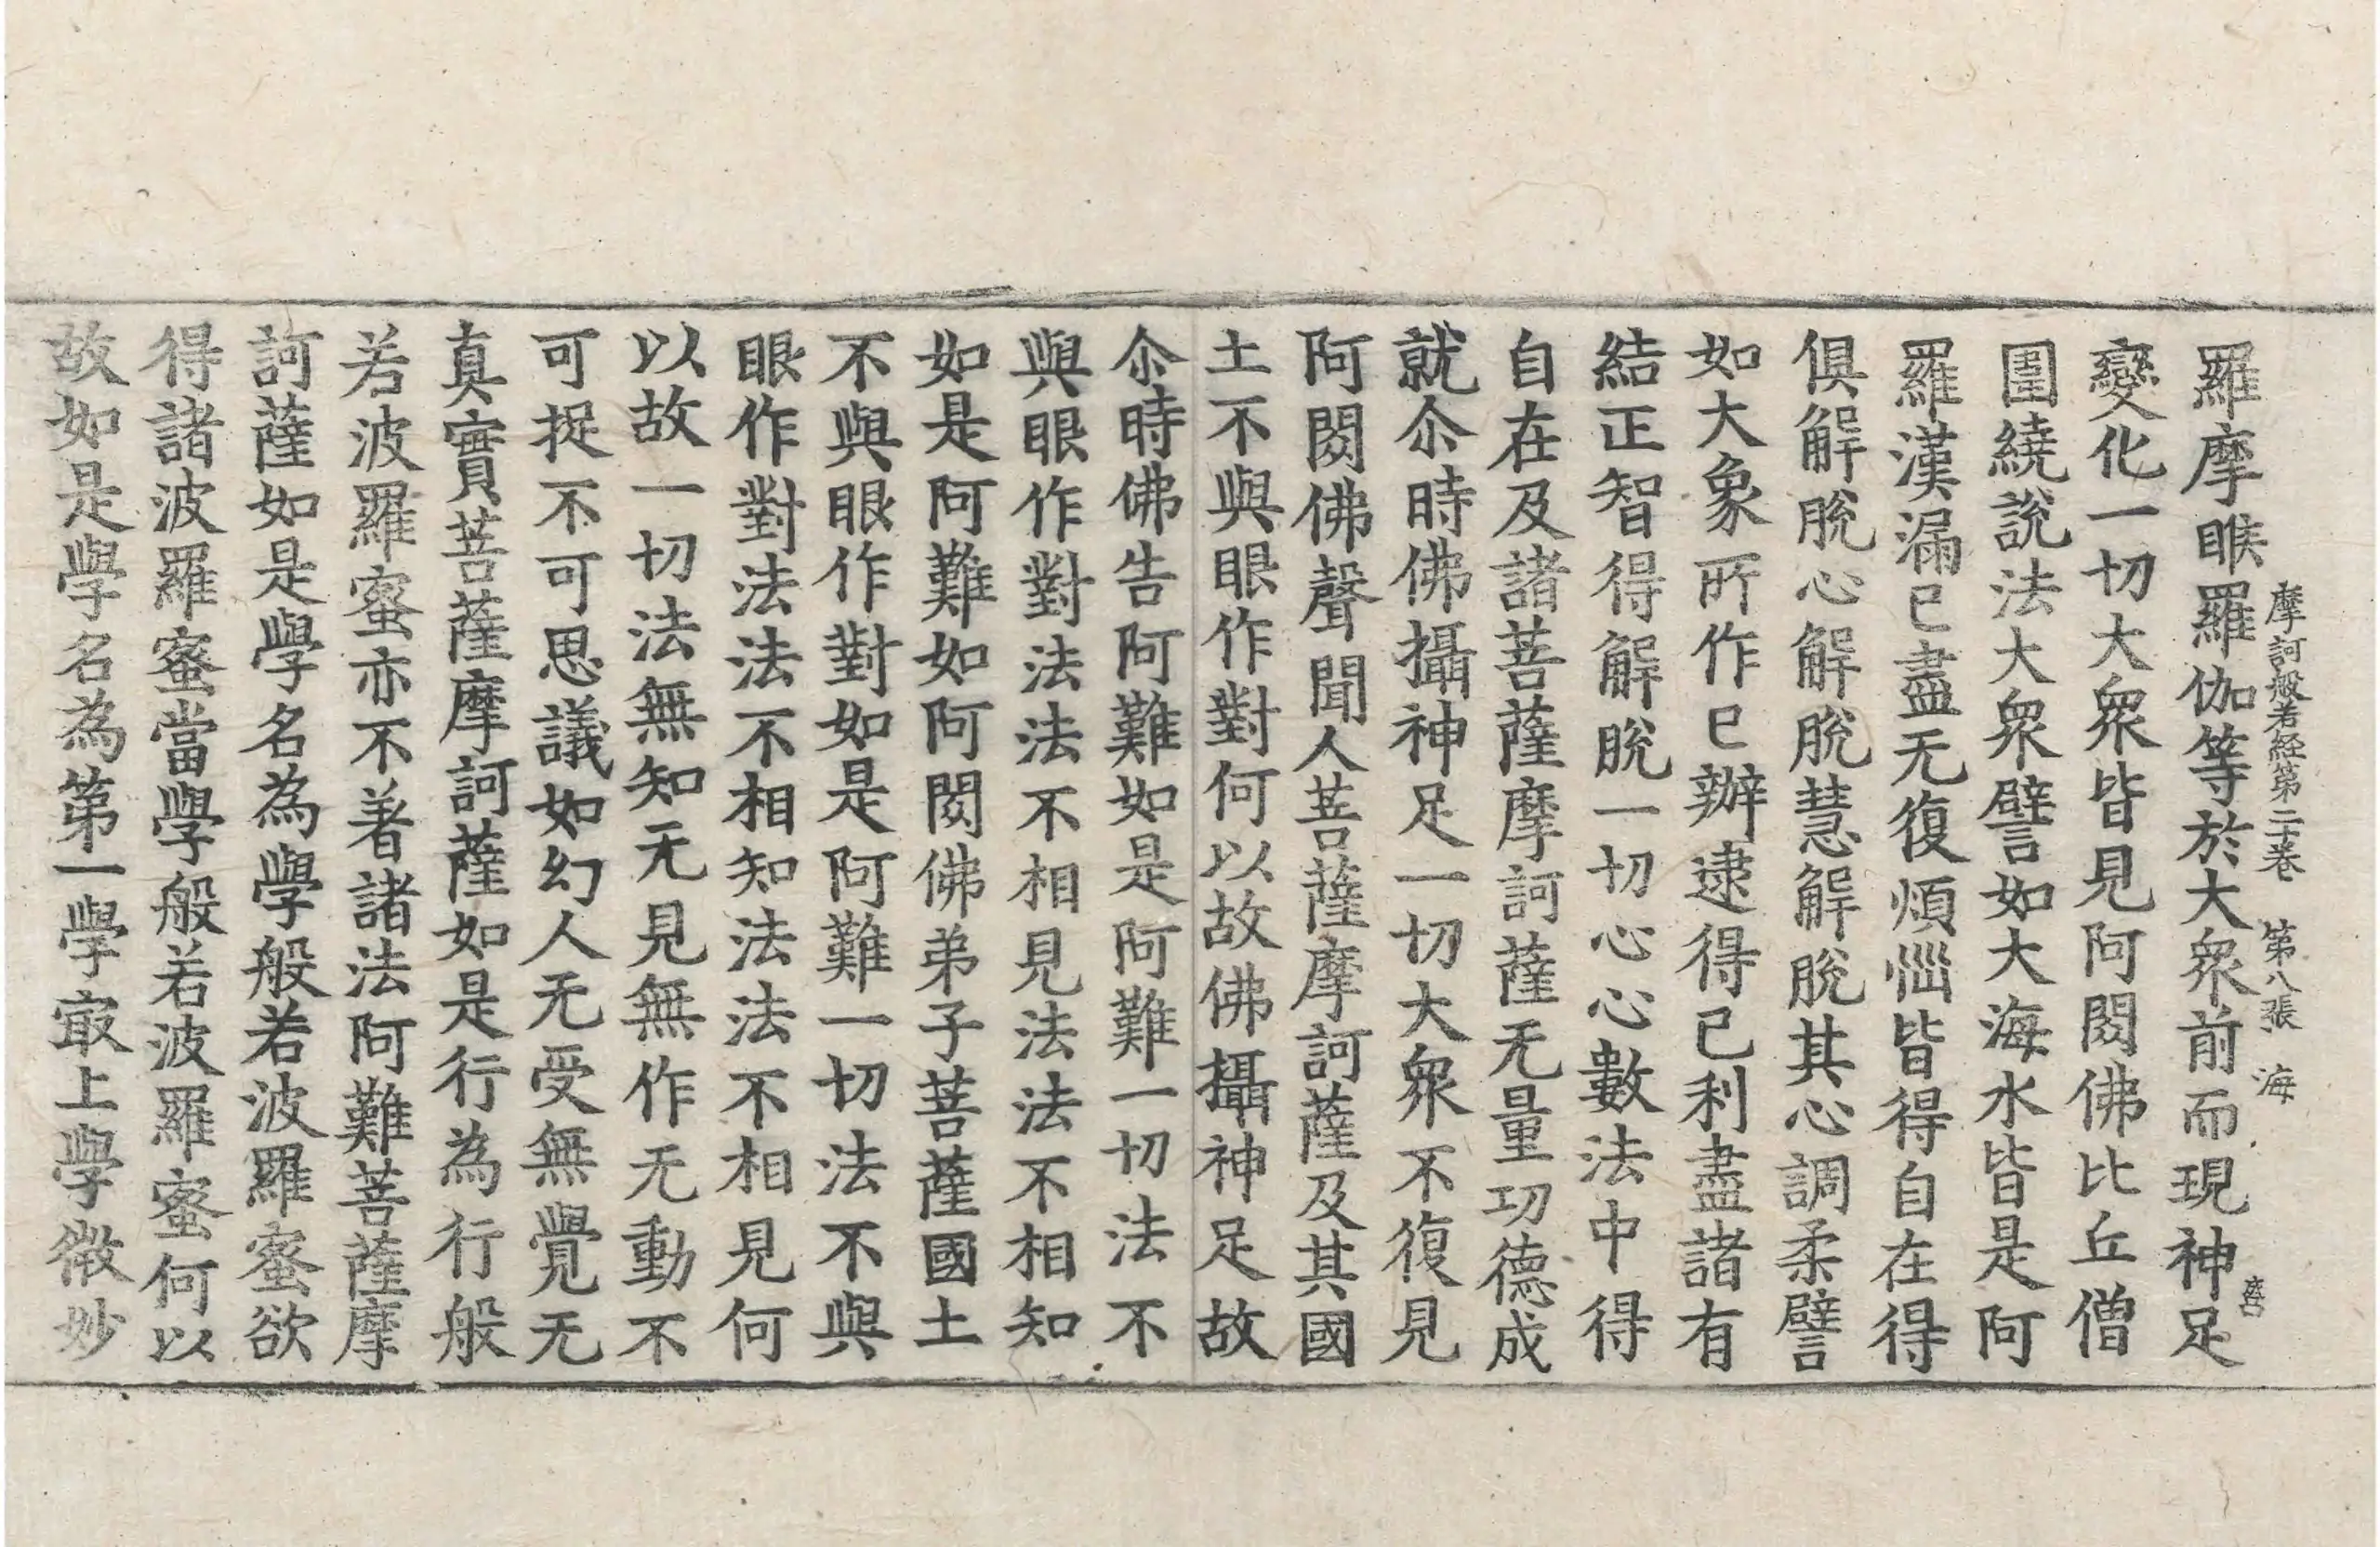 摩訶般若経第二十卷 第八張 海
羅摩睺羅伽等於大衆前而現神足
變化一切大衆皆見阿閦佛比丘僧
圍繞說法大衆譬如大海水皆是阿
羅漢漏已盡无復煩惱皆得自在得
俱解脫心解脫慧解脫其心調柔譬
如大象所作已辦逮得己利盡諸有
結正智得解脫一切心心數法中得
自在及諸菩薩摩訶薩无量功德成
就尒時佛攝神足一切大衆不復見
阿閦佛聲聞人菩薩摩訶薩及其國
土不與眼作對何以故佛攝神足故
尒時佛告阿難如是阿難一切法不
與眼作對法法不相見法法不相知
如是阿難如阿閦佛弟子菩薩國土
不與眼作對如是阿難一切法不與
眼作對法法不相知法法不相見何
以故一切法無知无見無作无動不
可捉不可思議如幻人无受無覺无
真實菩薩摩訶薩如是行為行般
若波羅蜜亦不著諸法阿難菩薩摩
訶薩如是學名為學般若波羅蜜欲
得諸波羅蜜當學般若波羅蜜何以
故如是學名為第一學㝡上學微妙